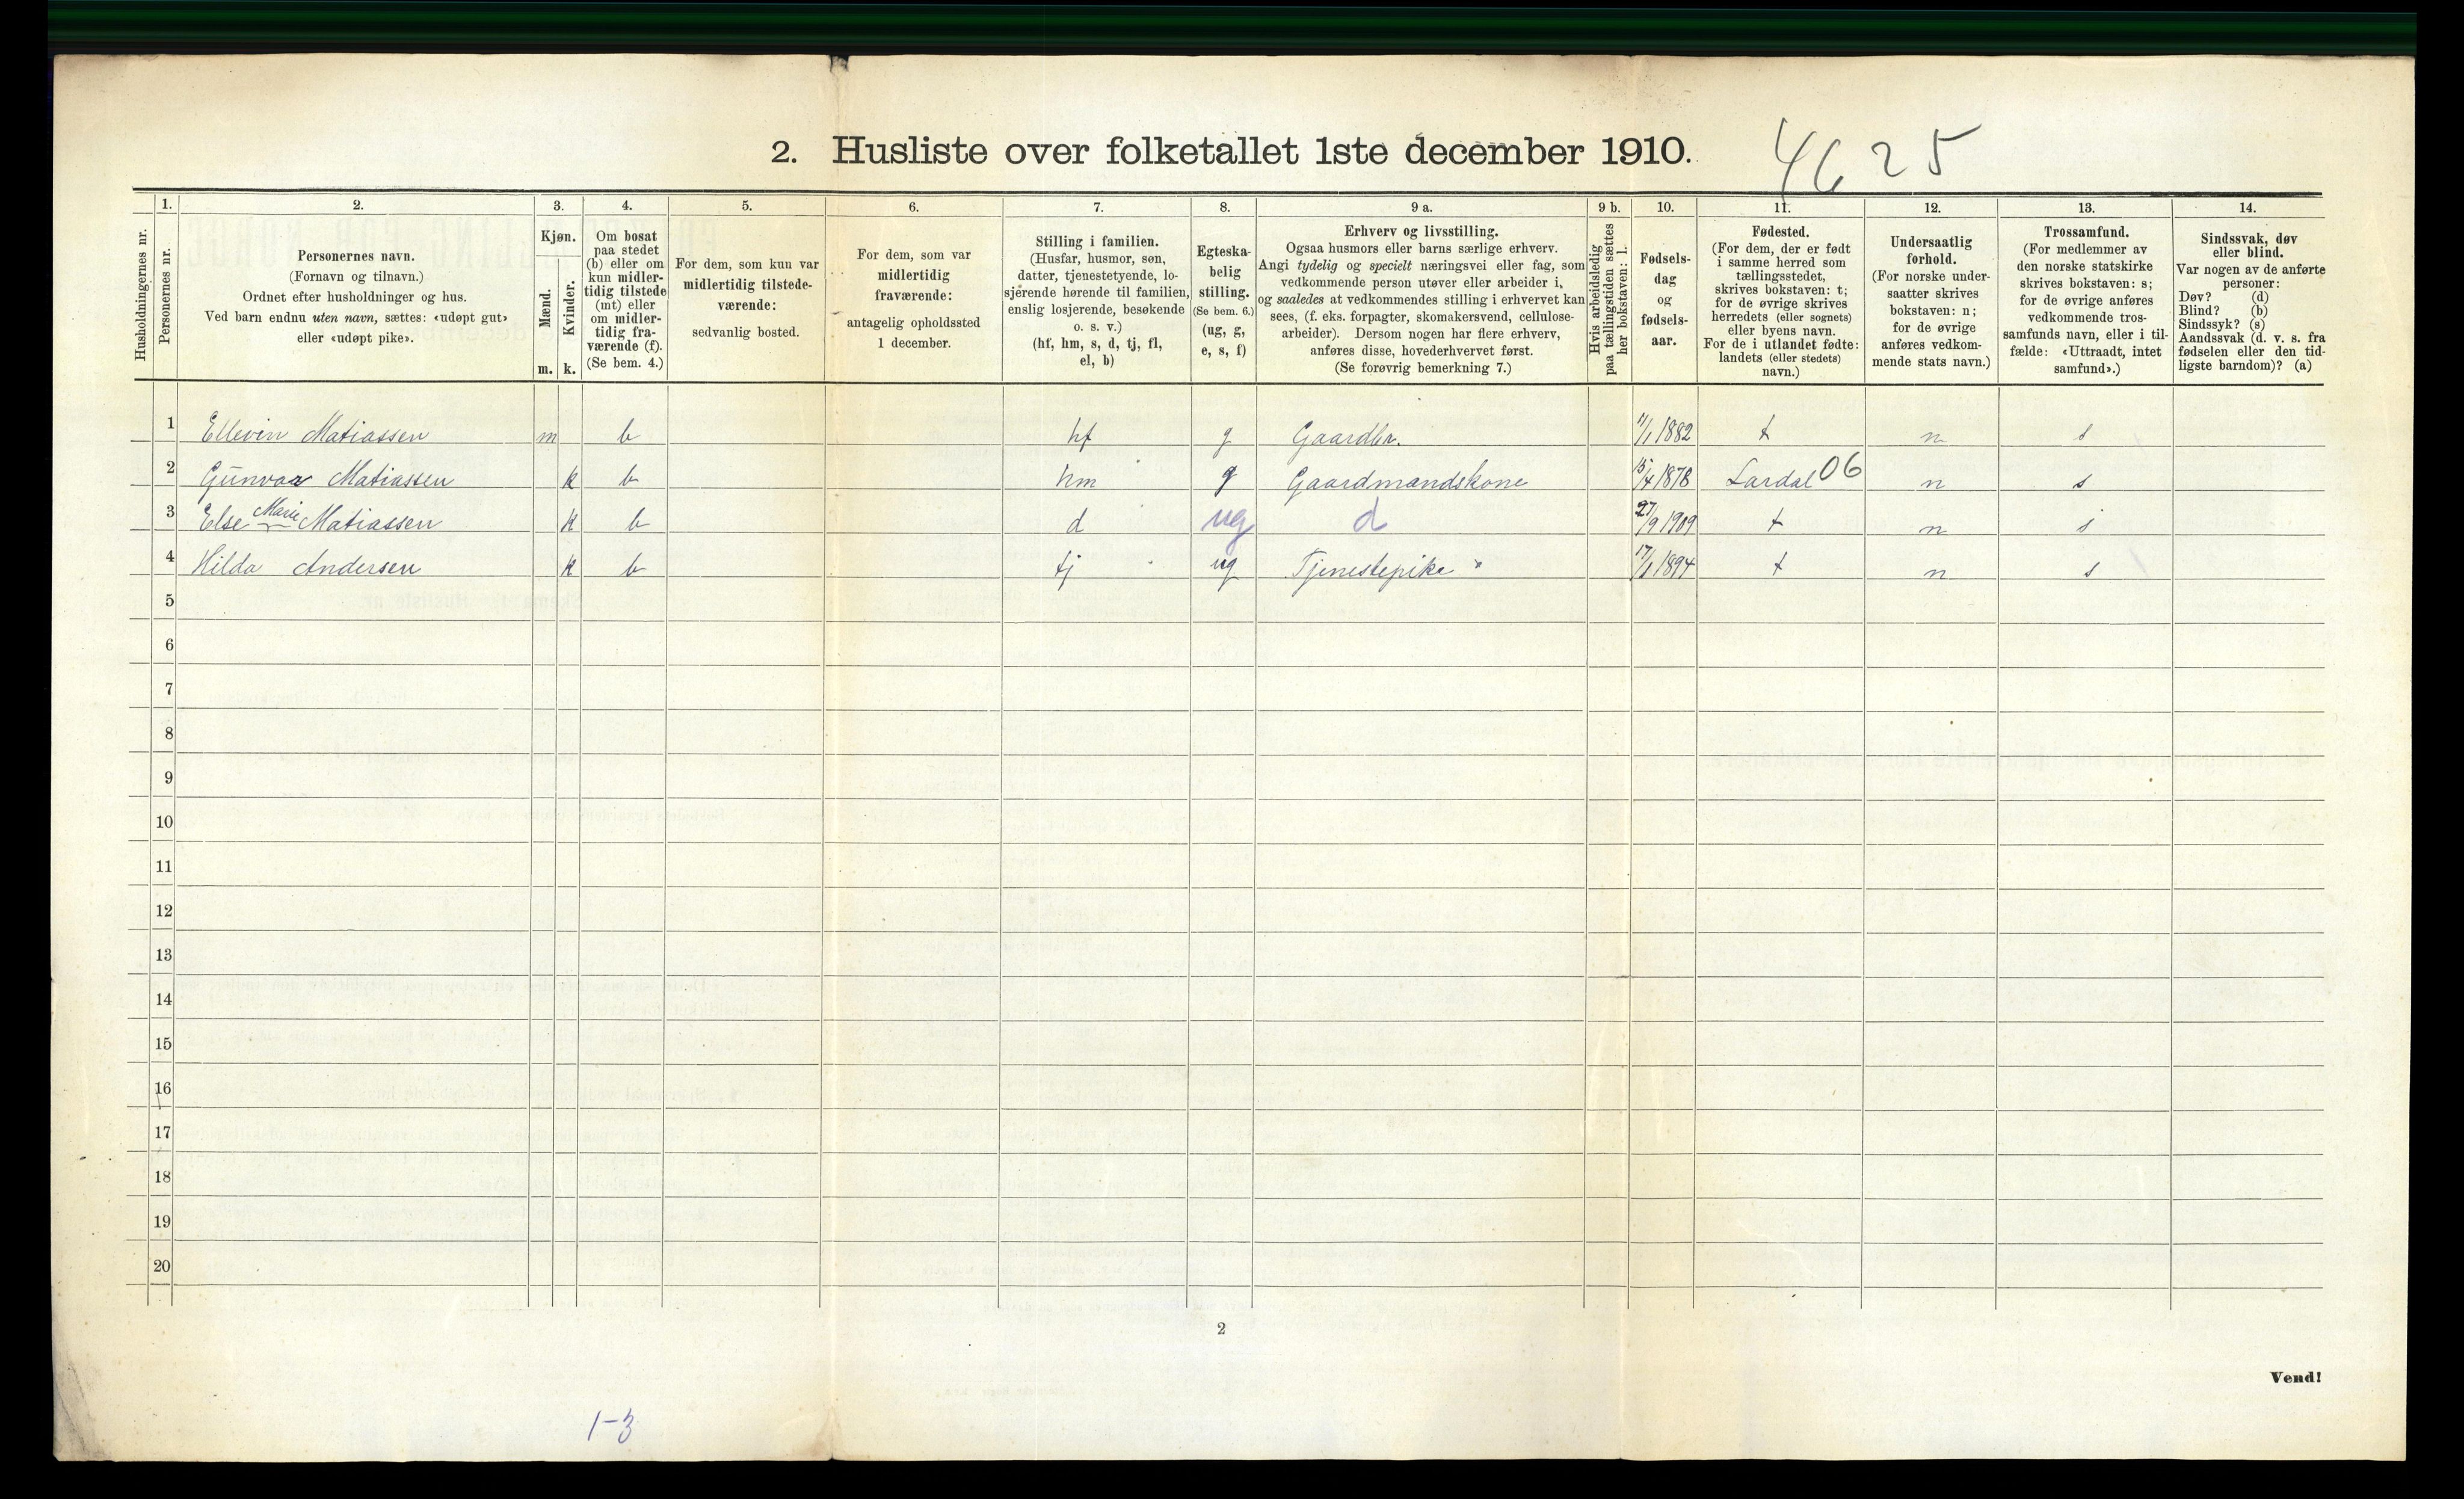 2. Husliste over folketallet 1ste december 1910.
4625
Husholdningernes nr.
1.
Personernes nr.
2.
Personernes navn.
(Fornavn og tilnavn.)
Ordnet efter husholdninger og hus.
Ved barn endnu uten navn, sættes: «udøpt gut»
eller «udøpt pike».
3.
Kjøn.
Mænd.
Kvinder.
m. k.
4.
Om bosat
paa stedet
(b) eller om
kun midler-
tidig tilstede
(mt) eller
om midler-
tidig fra-
værende (f).
(Se bem. 4.)
5.
For dem, som kun var
midlertidig tilstede-
værende:
sedvanlig bosted.
6.
For dem, som var
midlertidig
fraværende:
antagelig opholdssted
1 december.
7.
Stilling i familien.
(Husfar, husmor, søn,
datter, tjenestetyende, lo-
sjerende hørende til familien,
enslig losjerende, besøkende
o. s. v.)
(hf, hm, s, d, tj, fl,
el, b)
8.
Egteska-
belig
stilling.
(Se bem. 6.)
(ug, g,
e, s, f)
9 a.
Erhverv og livsstilling.
Ogsaa husmors eller barns særlige erhverv.
Angi tydelig og specielt næringsvei eller fag, som
vedkommende person utøver eller arbeider i,
og saaledes at vedkommendes stilling i erhvervet kan
sees, (f. eks. forpagter, skomakersvend, cellulose-
arbeider). Dersom nogen har flere erhverv,
anføres disse, hovederhvervet først.
(Se forøvrig bemerkning 7.)
9 b.
Hvis arbeidsledig
paa tællingstiden sættes
her bokstaven: l.
10.
Fødsels-
dag
og
fødsels-
aar.
11.
Fødested.
(For dem, der er født
i samme herred som
tællingsstedet,
skrives bokstaven: t;
for de øvrige skrives
herredets (eller sognets)
eller byens navn.
For de i utlandet fødte:
landets (eller stedets)
navn.)
12.
Undersaatlig
forhold.
(For norske under-
saatter skrives
bokstaven: n;
for de øvrige
anføres vedkom-
mende stats navn.)
13.
Trossamfund.
(For medlemmer av
den norske statskirke
skrives bokstaven: s;
for de øvrige anføres
vedkommende tros-
samfunds navn, eller i til-
fælde: «Uttraadt, intet
samfund».)
14.
Sindssvak, døv
eller blind.
Var nogen av de anførte
personer:
Døv? (d)
Blind? (b)
Sindssyk? (s)
Aandssvak (d. v. s. fra
fødselen eller den tid-
ligste barndom)? (a)
1 Ellevin Matiassen m b hf g Gaardbr. 1882 t n s
2 Gunvor Matiassen k b hm g Gaardmandskone 15/4 1878 Lardal 06 n s
3 Else Marie Matiassen k b d ug d 27/9 1909 t n s
4 Hilda Andersen k b tj ug Tjenestepike 17/1 1894 t n s
5
6
7
8
9
10
11
12
13
14
15
16
17
18
19
20
2
Vend!
1-3